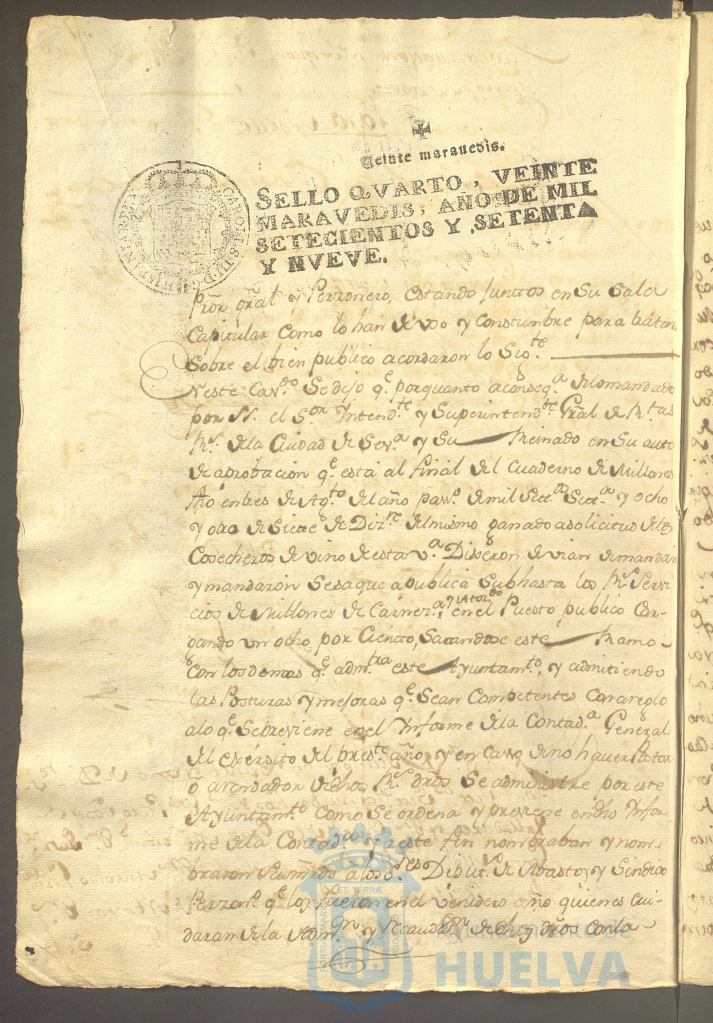 Veinte maravedis.
SELLO QVARTO, VEINTE
MARAVEDIS, AÑO DE MIL
SETECIENTOS Y SETENTA
Y NVEVE.
CAROLUS III D G HISPANIAR REX
Pror gral y Perzonero, estando Junttos en Su Sala
Capitular Como lo han de vso y Constumbre para tratar
Sobre el bien publico acordaron lo Sigte
Neste Cavdo Se dijo qe porquanto aconseqa delomandado
por el Sor Yntendte y Superintendte Gral de Rtas
Rs dela Ciudad de Seva y Su Reinado en Su auto
de aprobacion qe está al final del Cuaderno de Millones
tres de Agto del año pasdo de mil Setta Setta y ocho
y otro de Siete de Dizre delmismo ganado asolicitud delos
Cosecheros de vino de esta va Dixeron devian de mandar
y mandaron Sesaque apublica Subhasta los Rs Servi
cios de Millones de Carnes en el Puesto publico Car
gando un ocho por Ciento, Sacandose este Ramo
Con los demas qe admtra este Ayuntamto, y admitiendo
las Posturas y mejoras qe Sean Competentes Conareglo
alo qe Sebreviene en el Ynforme dela Contada General
del exérsito del preste año, y en caso deno haver Postor
o arendador dichos Rs dros Se administre por este
Ayuntamto Como Se ordena y previene en dho Ynfor
me dela Contada y aeste fin nombraban y nom
braron alos Sres Diput. de Abastos y Sindico
Perzonro qe los fueren en el venidero año quienes cui
daran dela Admon y Recaudon de dhos dros Conla
Ayuntamiento de
HUELVA